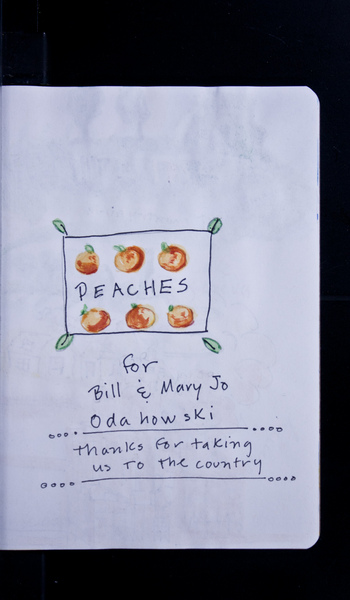 PEACHES
for
Bill & Mary Jo
Odahowski
thanks for taking
us to the country